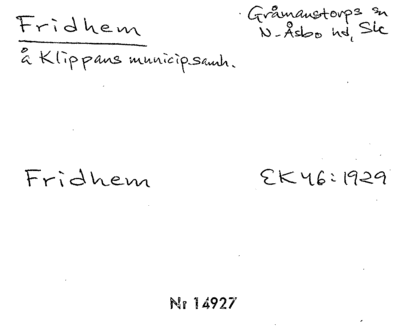 Fridhem
Gråmanstorps sn
N-Åsbo hd, Sk
å Klippans municip.samh.
Fridhem
EK 46:1929
Nr 14927